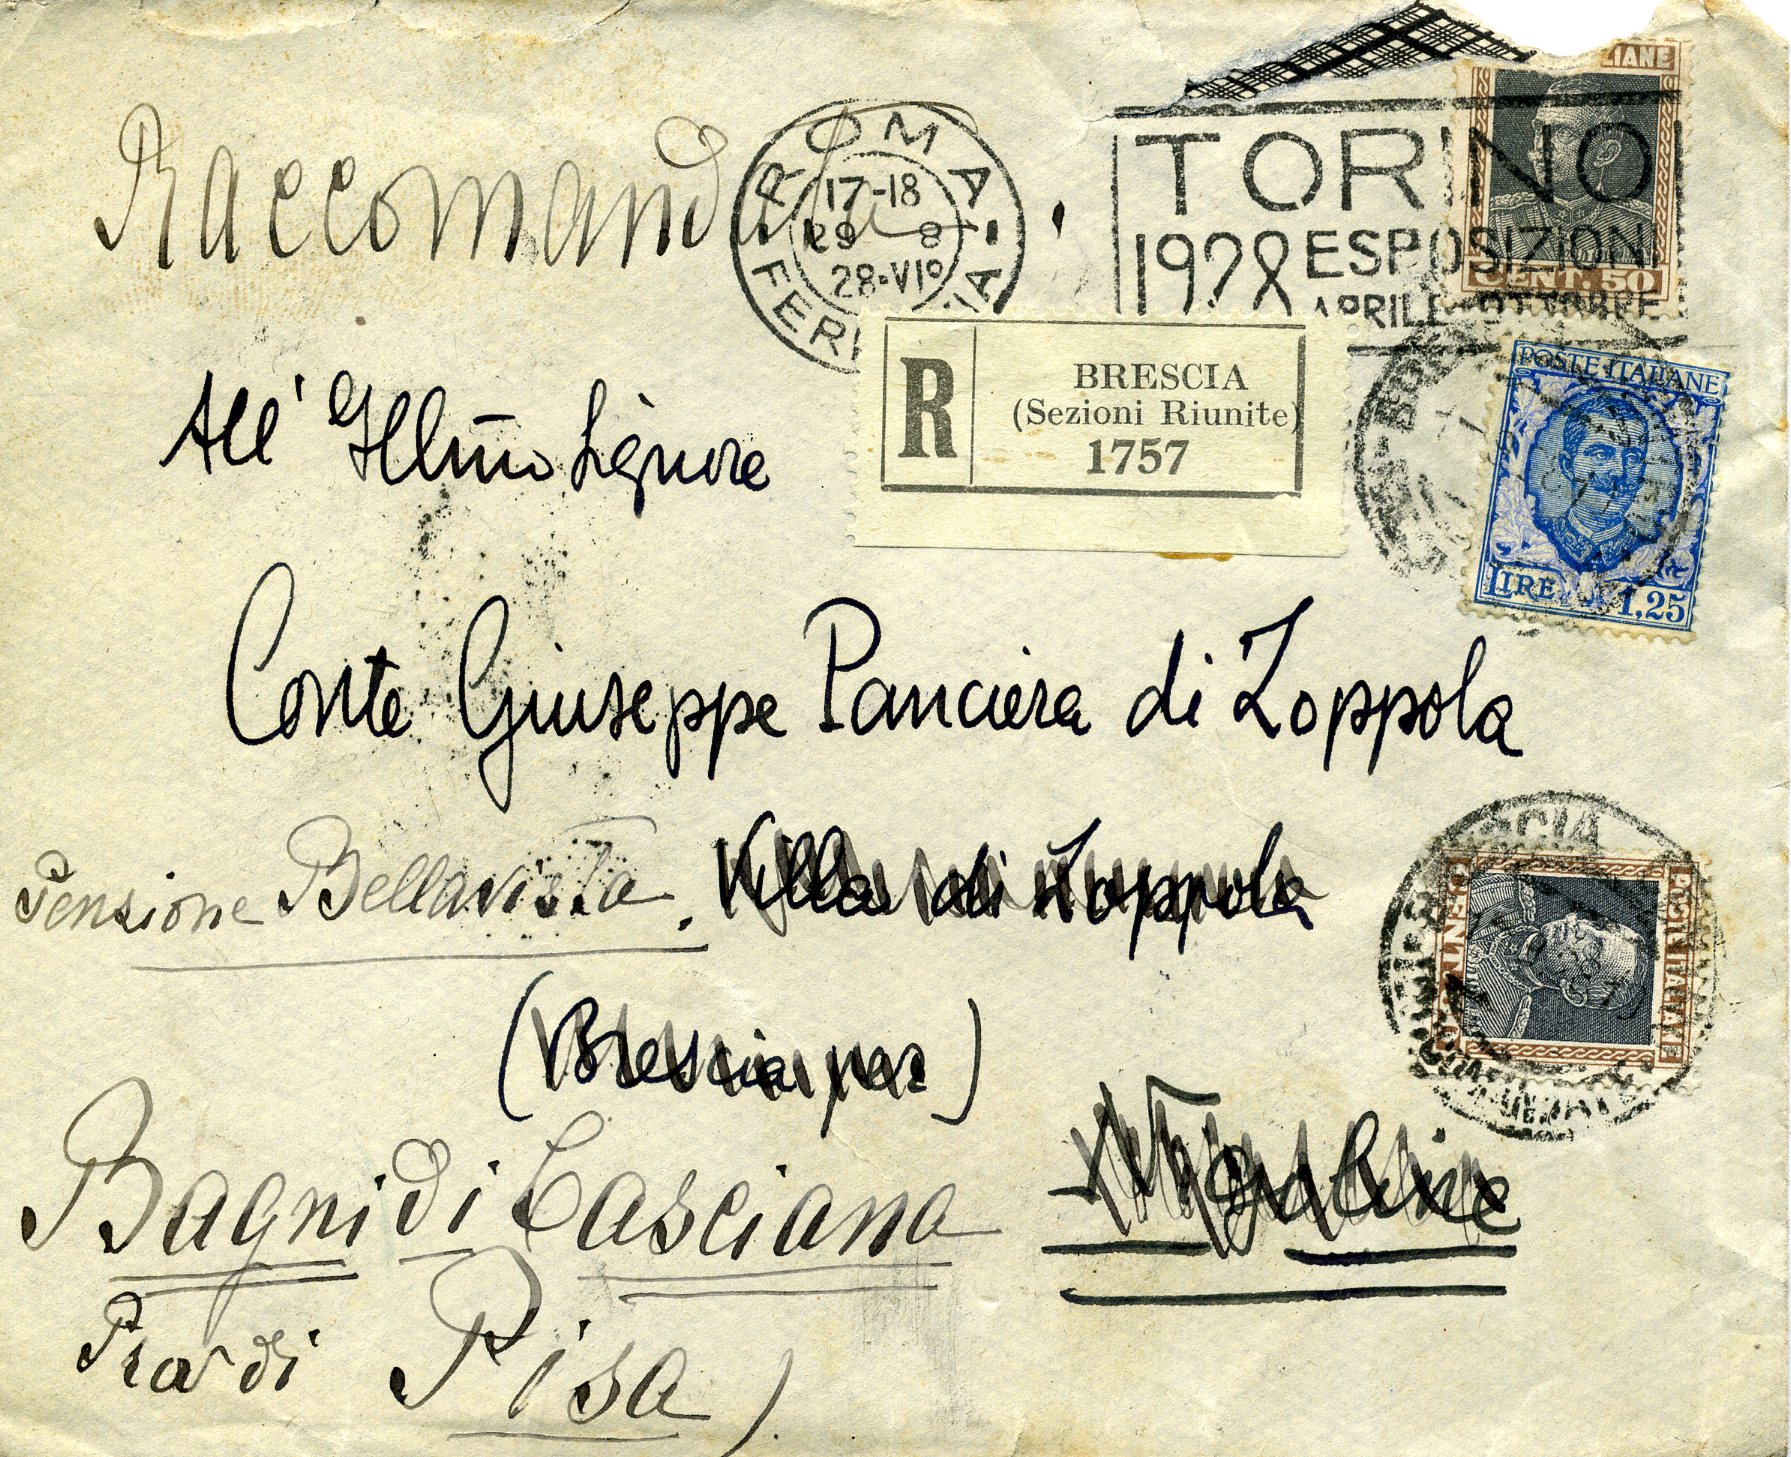 Raccomandata
ROMA
17-18
29 8
28·VIº
FERROVIA
TORINO
1928 ESPOSIZIONI
APRILE OTTOBRE
LIANE
CENT. 50
R
BRESCIA
(Sezioni Riunite)
1757
POSTE ITALIANE
LIRE 1,25
All' Illmo Signore
Conte Giuseppe Panciera di Zoppola
Pensione Bellavista. Villa di Zoppola
(Brescia per)
Bagni di Casciana
Pisa)
POSTE ITALIANE
BRESCIA